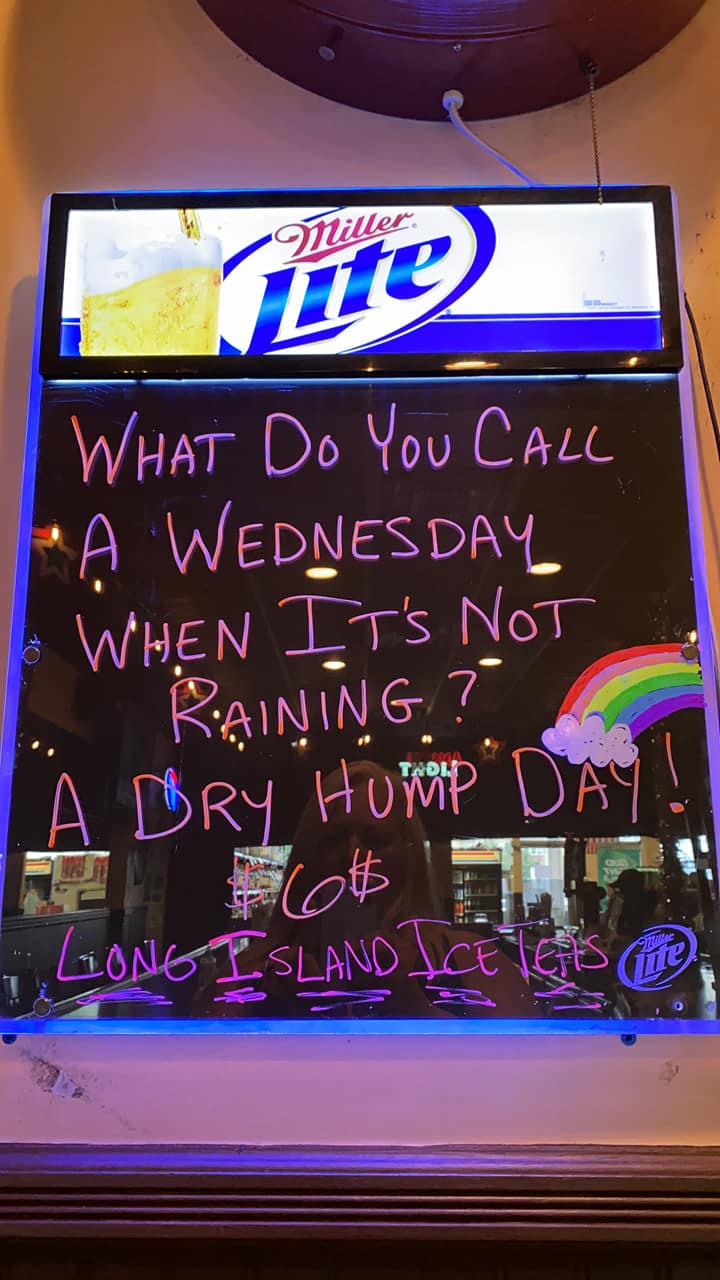 Miller
Lite
WHAT DO YOU CALL
A WEDNESDAY
WHEN IT'S NOT
RAINING?
A DRY HUMP DAY!
$6$
LONG ISLAND ICE TEAS
Miller
Lite